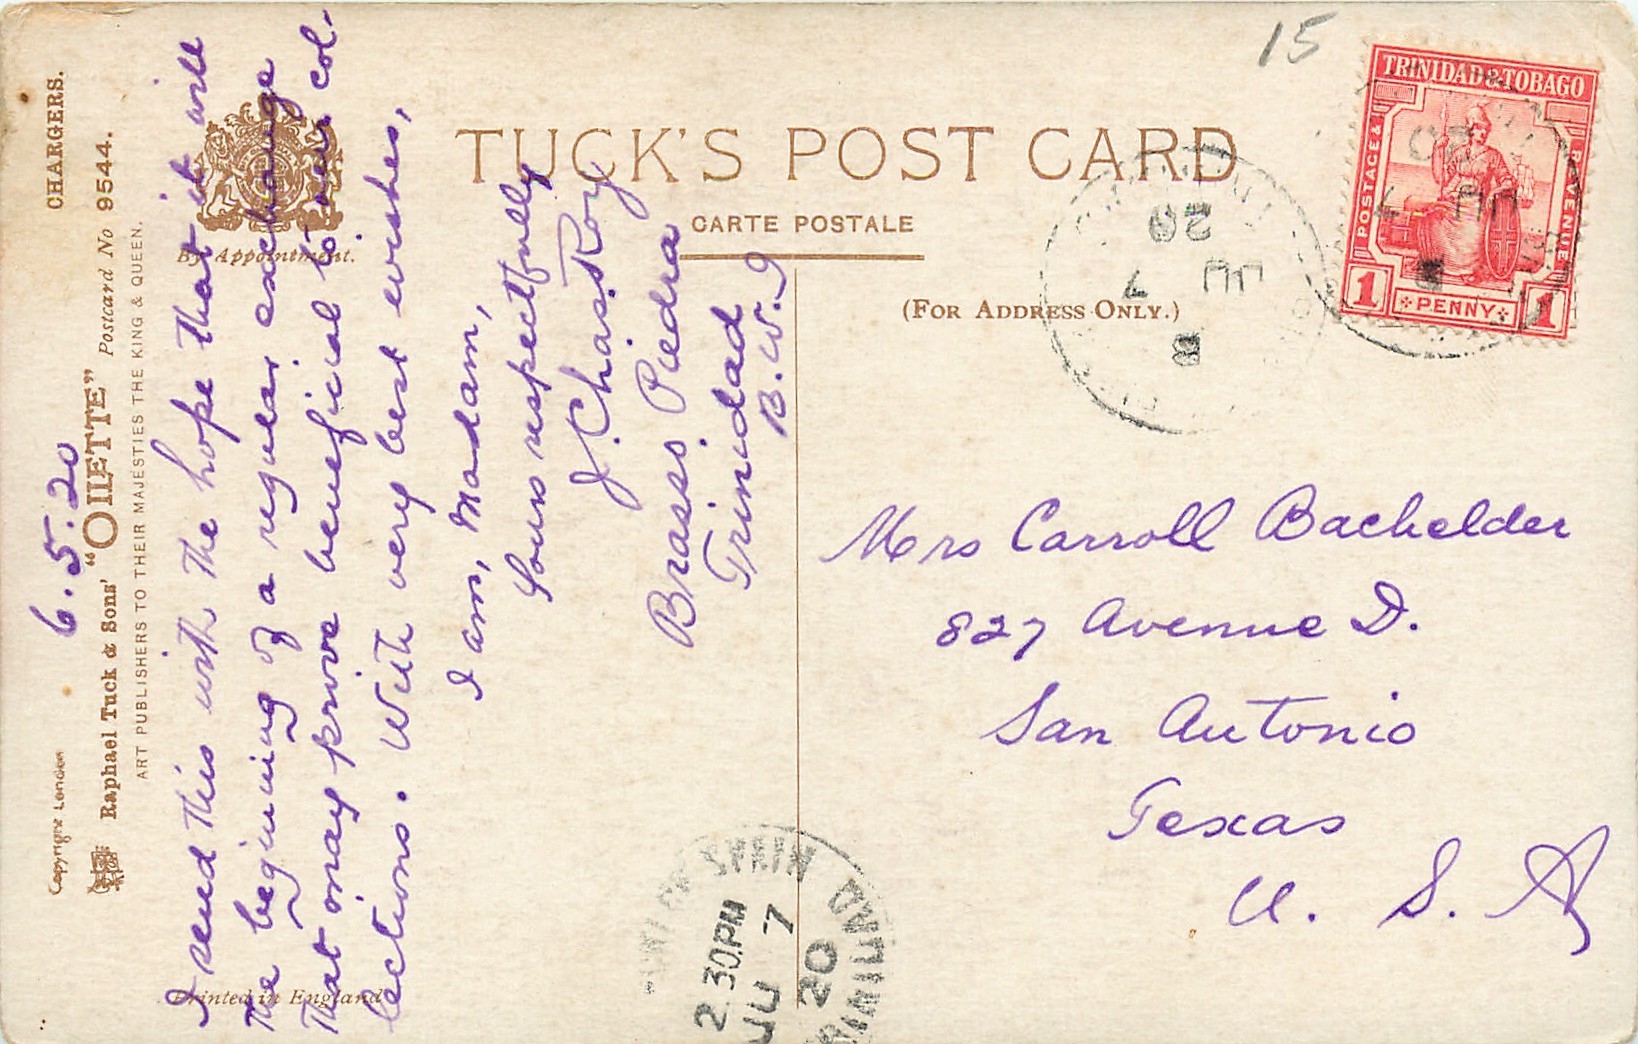 CHARGERS.
Copyright London
Raphael Tuck & Sons' "OILETTE" Postcard No 9544.
ART PUBLISHERS TO THEIR MAJESTIES THE KING & QUEEN.
By Appointment.
Printed in England
6.5.20
I send this with the hope that it will
the beginning of a regular exchange
that may prove beneficial to our col-
lections. With very best wishes,
I am, Madam,
Yours respectfully
J. Chas. Roy
Brasso Piedra
Trinidad
B.W.I
TUCK'S POST CARD
CARTE POSTALE
(FOR ADDRESS ONLY.)
15
TRINIDAD & TOBAGO
POSTAGE &
REVENUE
1 PENNY 1
20
JU 7
Mrs Carroll Bachelder
827 Avenue D.
San Antonio
Texas
U. S. A
PORT OF SPAIN
2.30PM
JU 7
20
TRINIDAD